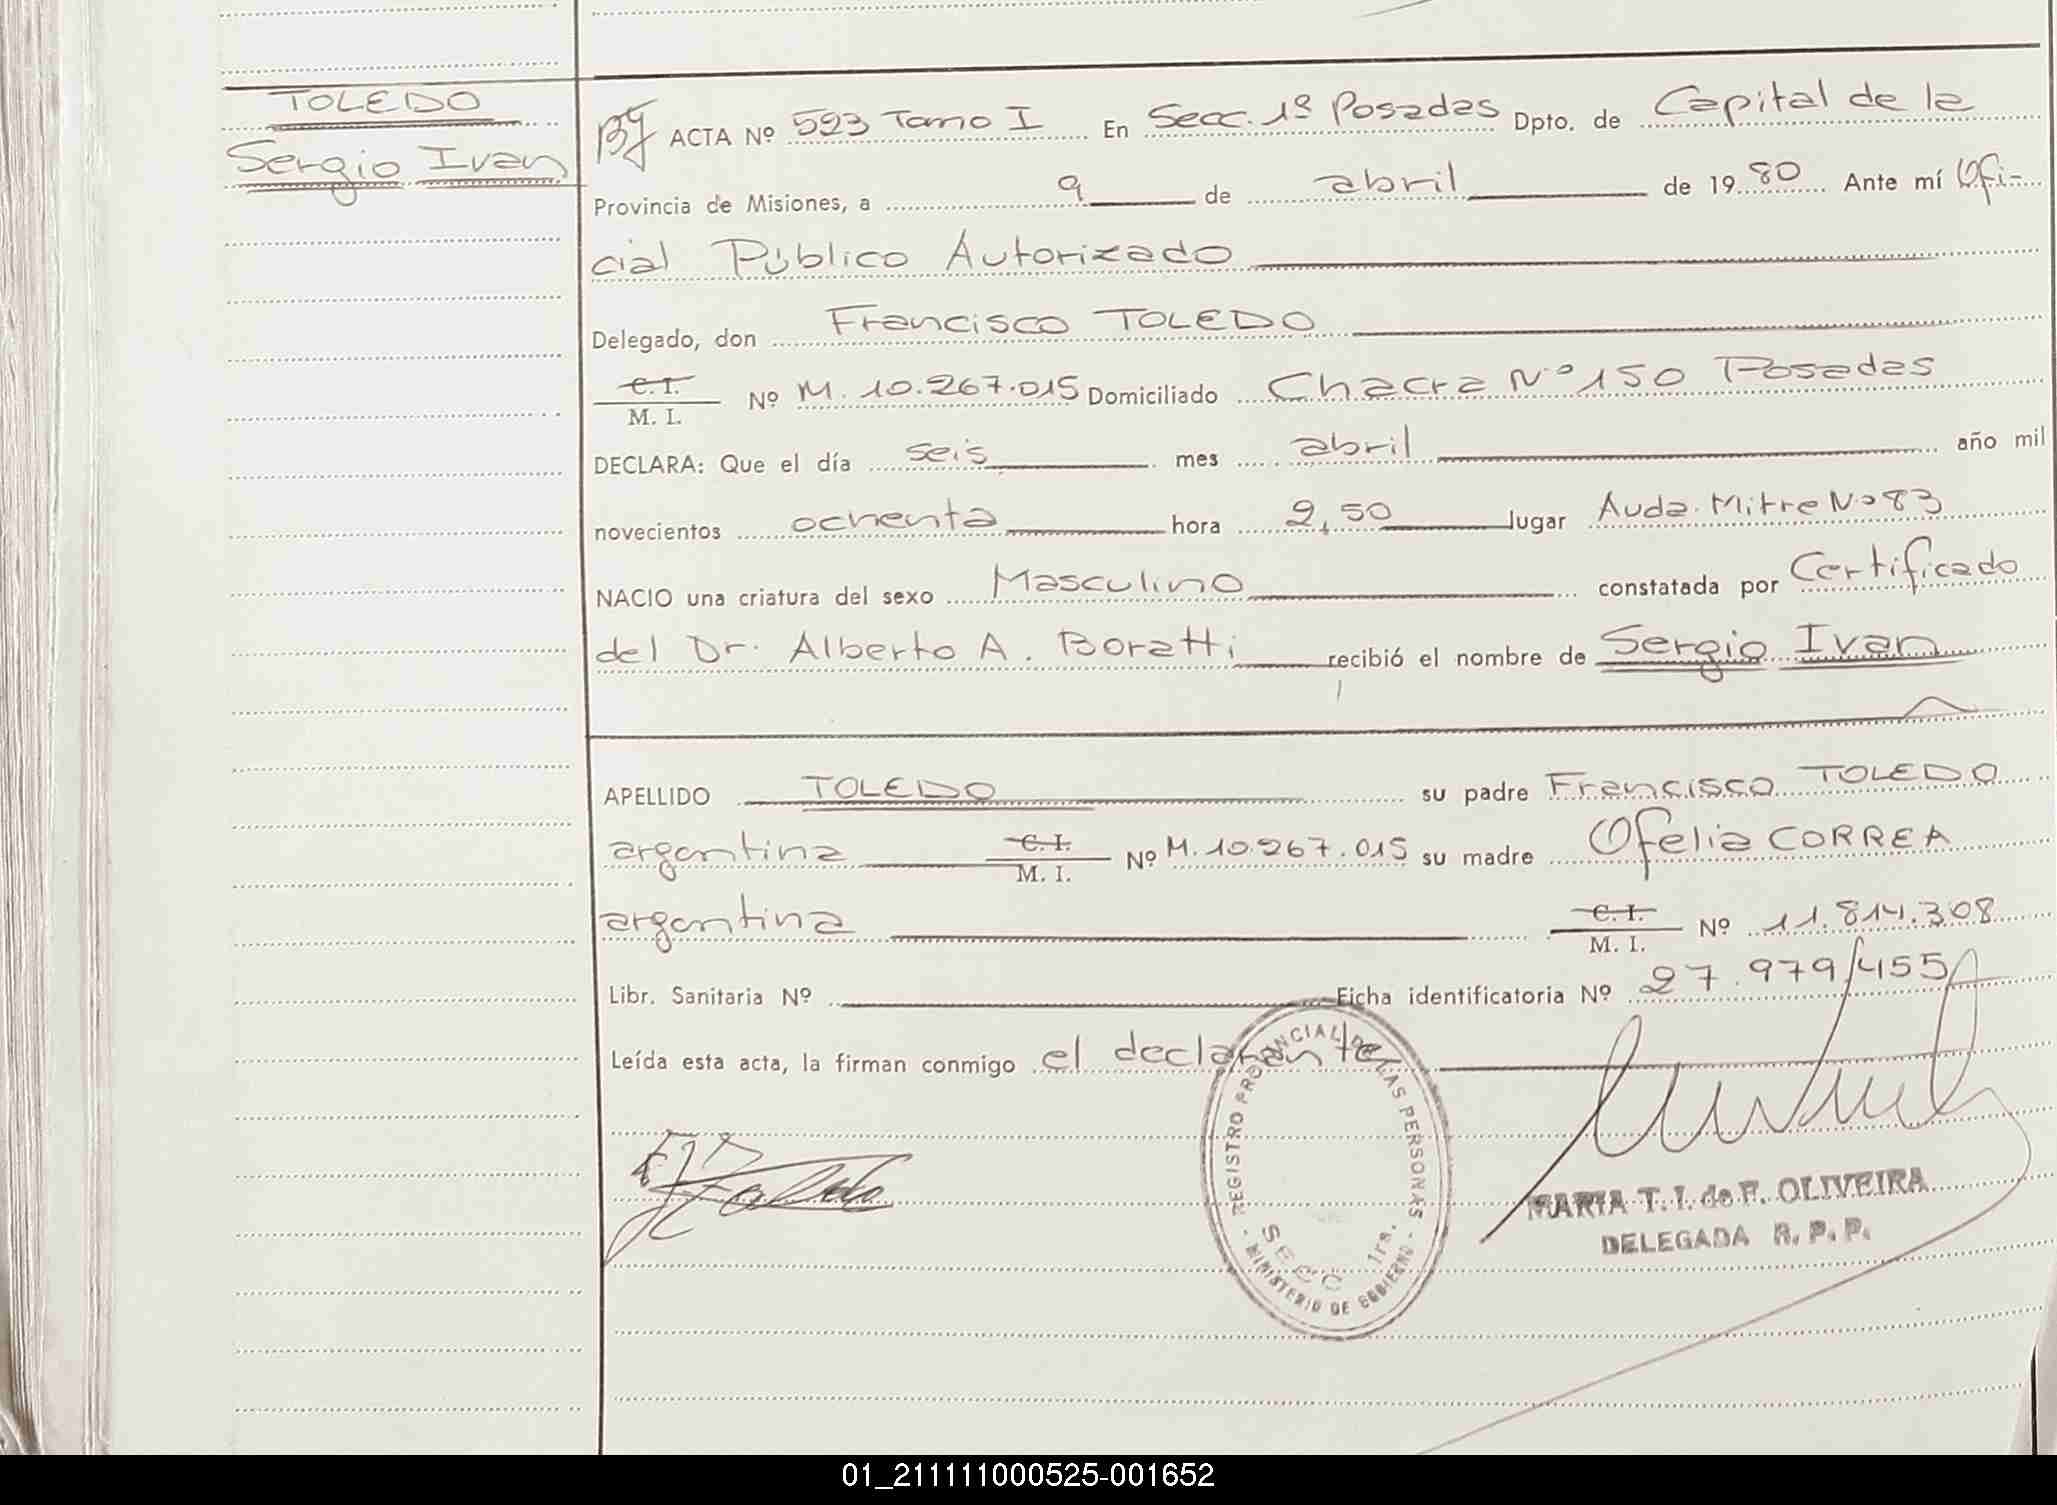 TOLEDO
Sergio Ivan
ACTA Nº 593 Tomo I En Secc. 1º Posadas Dpto. de Capital de la
Provincia de Misiones, a 9 de abril de 1980 Ante mí Ofi-
cial Público Autorizado
Delegado, don Francisco TOLEDO
C. I.
M. I. Nº M. 10.267.015 Domiciliado Chacra Nº 150 Posadas
DECLARA: Que el día seis mes abril año mil
novecientos ochenta hora 2,50 lugar Avda. Mitre Nº 83
NACIO una criatura del sexo Masculino constatada por Certificado
del Dr. Alberto A. Boratti recibió el nombre de Sergio Ivan
APELLIDO TOLEDO su padre Francisco TOLEDO
argentina C. I. M. I. Nº M. 10.267.015 su madre Ofelia CORREA
argentina C. I. M. I. Nº 11.814.308
Libr. Sanitaria Nº Ficha identificatoria Nº 27.979/455
Leída esta acta, la firman conmigo el declarante
REGISTRO PROVINCIAL DE LAS PERSONAS
SECC. 1ra.
- MINISTERIO DE GOBIERNO -
MARIA T. I. de F. OLIVEIRA
DELEGADA R. P. P.
01_211111000525-001652